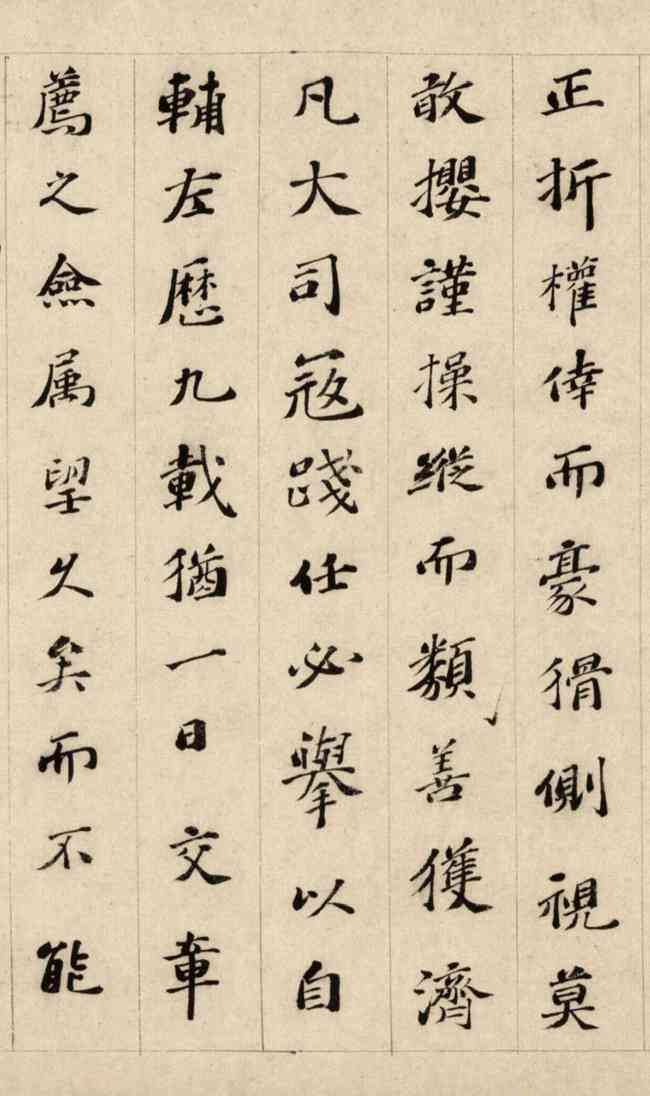 正折權倖而豪猾側視莫
敢攖謹操縱而類善獲濟
凡大司寇踐任必舉以自
輔左歷九載猶一日交章
薦之僉属望久矣而不能